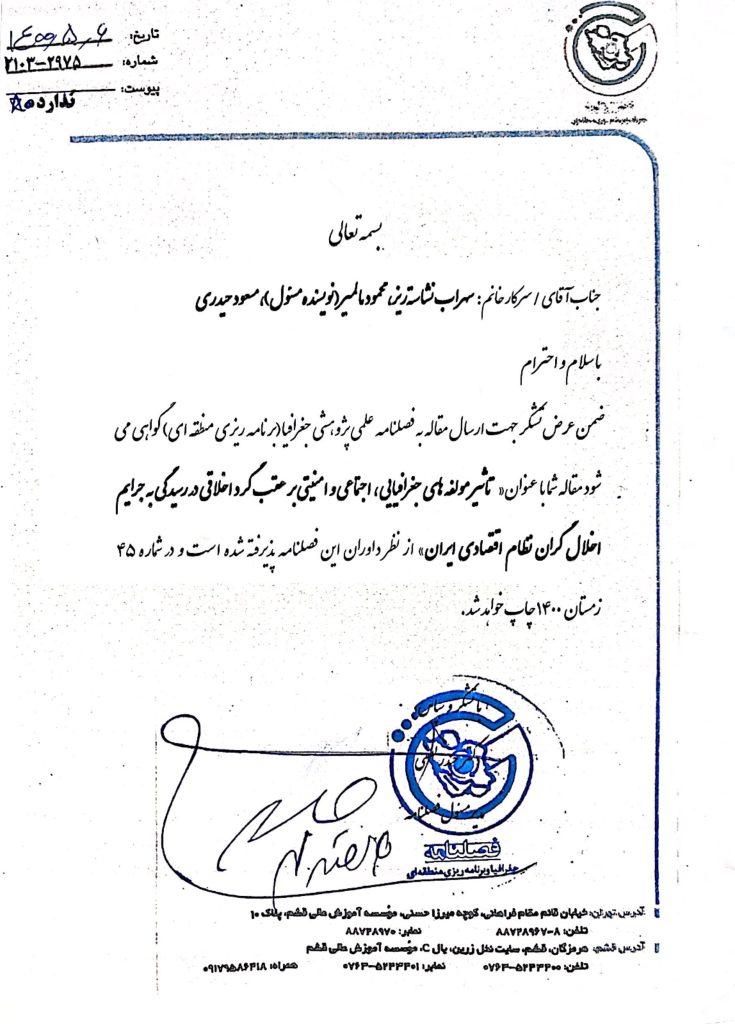 تاریخ: ۱۴۰۰٫۵٫۶
شماره: ۲۹۷۵-۲۱۰۳
پیوست: ندارد
بسمه تعالی
جناب آقای / سرکار خانم: سهراب نشاسته ریز، محمود مالمیر(نویسنده مسئول)، مسعود حیدری
با سلام و احترام
ضمن عرض تشکر جهت ارسال مقاله به فصلنامه علمی پژوهشی جغرافیا(برنامه ریزی منطقه ای) گواهی می
شود مقاله شما با عنوان« تاثیر مولفه های جغرافیایی، اجتماعی و امنیتی بر عقب گرد اخلاقی در رسیدگی به جرایم
اخلال گران نظام اقتصادی ایران» از نظر داوران این فصلنامه پذیرفته شده است و در شماره ۴۵
زمستان ۱۴۰۰ چاپ خواهد شد.
با تشکر و سپاس
دکتر
مدیر مسئول فصلنامه
فصلنامه
جغرافیا و برنامه ریزی منطقه‌ای
آدرس تهران: خیابان قائم مقام فراهانی، کوچه میرزا حسنی، موسسه آموزش عالی قشم، پلاک ۱۰
تلفن: ۸-۸۸۷۲۸۹۶۷ نمابر: ۸۸۷۲۸۹۷۰
آدرس قشم: هرمزگان، قشم، سایت نخل زرین، بال C، موسسه آموزش عالی قشم
تلفن: ۵۲۴۳۲۰۰-۰۷۶۳ نمابر: ۵۲۴۳۲۰۱-۰۷۶۳ همراه: ۰۹۱۷۹۵۸۶۲۱۸